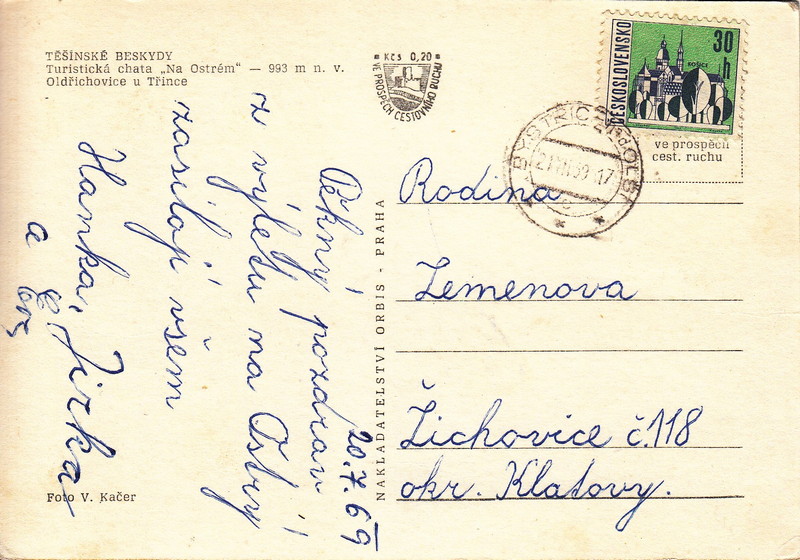 TĚŠÍNSKÉ BESKYDY
Turistická chata „Na Ostrém" — 993 m n. v.
Oldřichovice u Třince
Kčs 0,20
VE PROSPĚCH CESTOVNÍHO RUCHU
ČESKOSLOVENSKO
30 h
KOŠICE
ve prospěch
cest. ruchu
BYSTŘICE N. OLŠÍ
Pěkný pozdrav
z výletu na Ostrý
zasílají všem
Hanka, Jirka
a
20.7.69
NAKLADATELSTVÍ ORBIS - PRAHA
Rodina
Zemenova
Žichovice č. 118
okr. Klatovy.
Foto V. Kačer